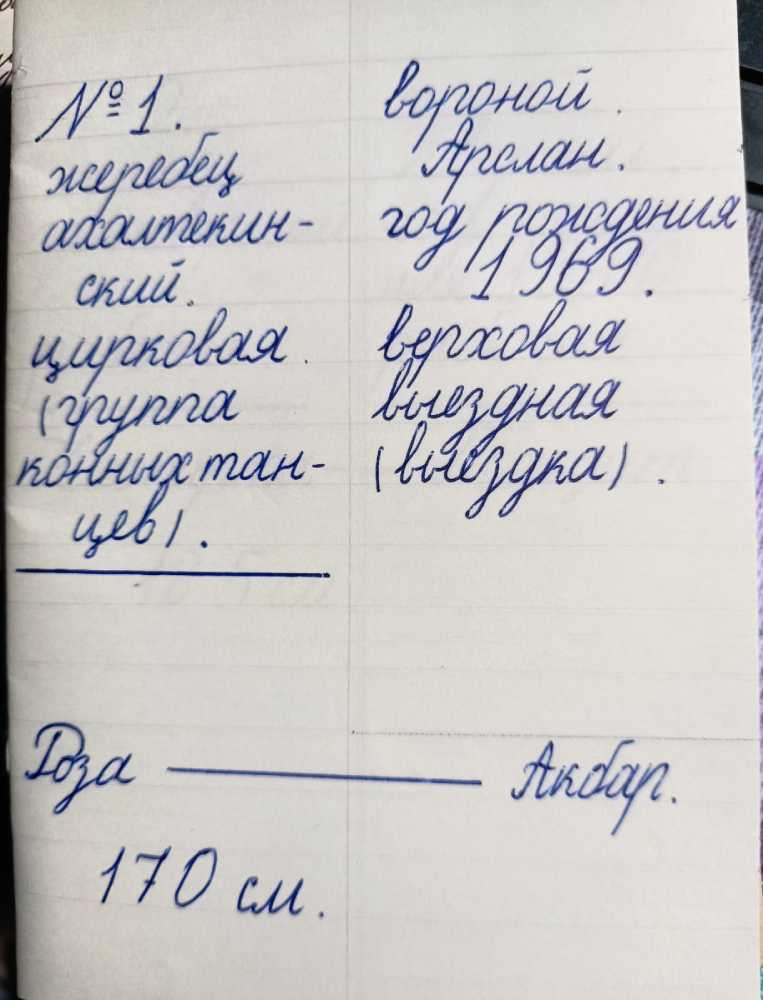 № 1.
жеребец
ахалтекин-
ский.
цирковая.
(группа
конных тан-
цев).
вороной.
Арслан.
год рождения
1969.
верховая
выездная
(выездка).
Роза — Акбар.
170 см.